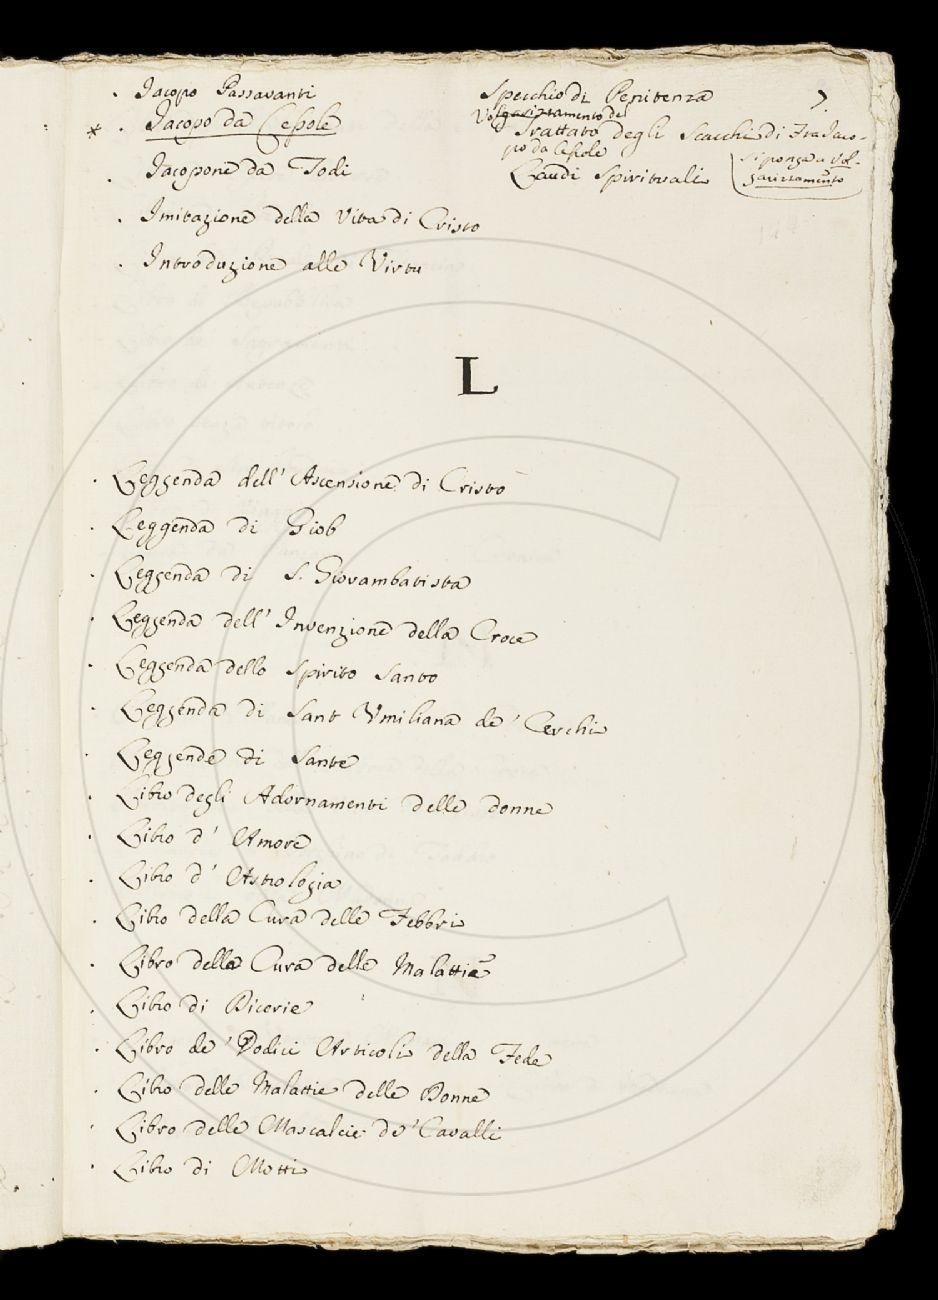 7.
. Iacopo Passavanti Specchio di Penitenza
* . Iacopo da Cessole Volgarizzamento del Trattato degli Scacchi di Fra Iaco-
po da Cessole
si ponga a Vol-
garizzamento
. Iacopone da Todi Laudi Spirituali
. Imitazione della Vita di Cristo
. Introduzione alle Virtu
L
. Leggenda dell' Ascensione di Cristo
. Leggenda di Giob
. Leggenda di S. Giovambatista
. Leggenda dell' Invenzione della Croce
. Leggenda dello Spirito Santo
. Leggenda di Sant Umiliana de' Cerchi
. Leggende di Sante
. Libro degli Adornamenti delle donne
. Libro d' Amore
. Libro d' Astrologia
. Libro della Cura delle Febbri
. Libro della Cura delle Malattie
. Libro di Dicerie
. Libro de' Dodici Articoli della Fede
. Libro delle Malattie delle Donne
. Libro delle Mascalcie de' Cavalli
. Libro di Motti